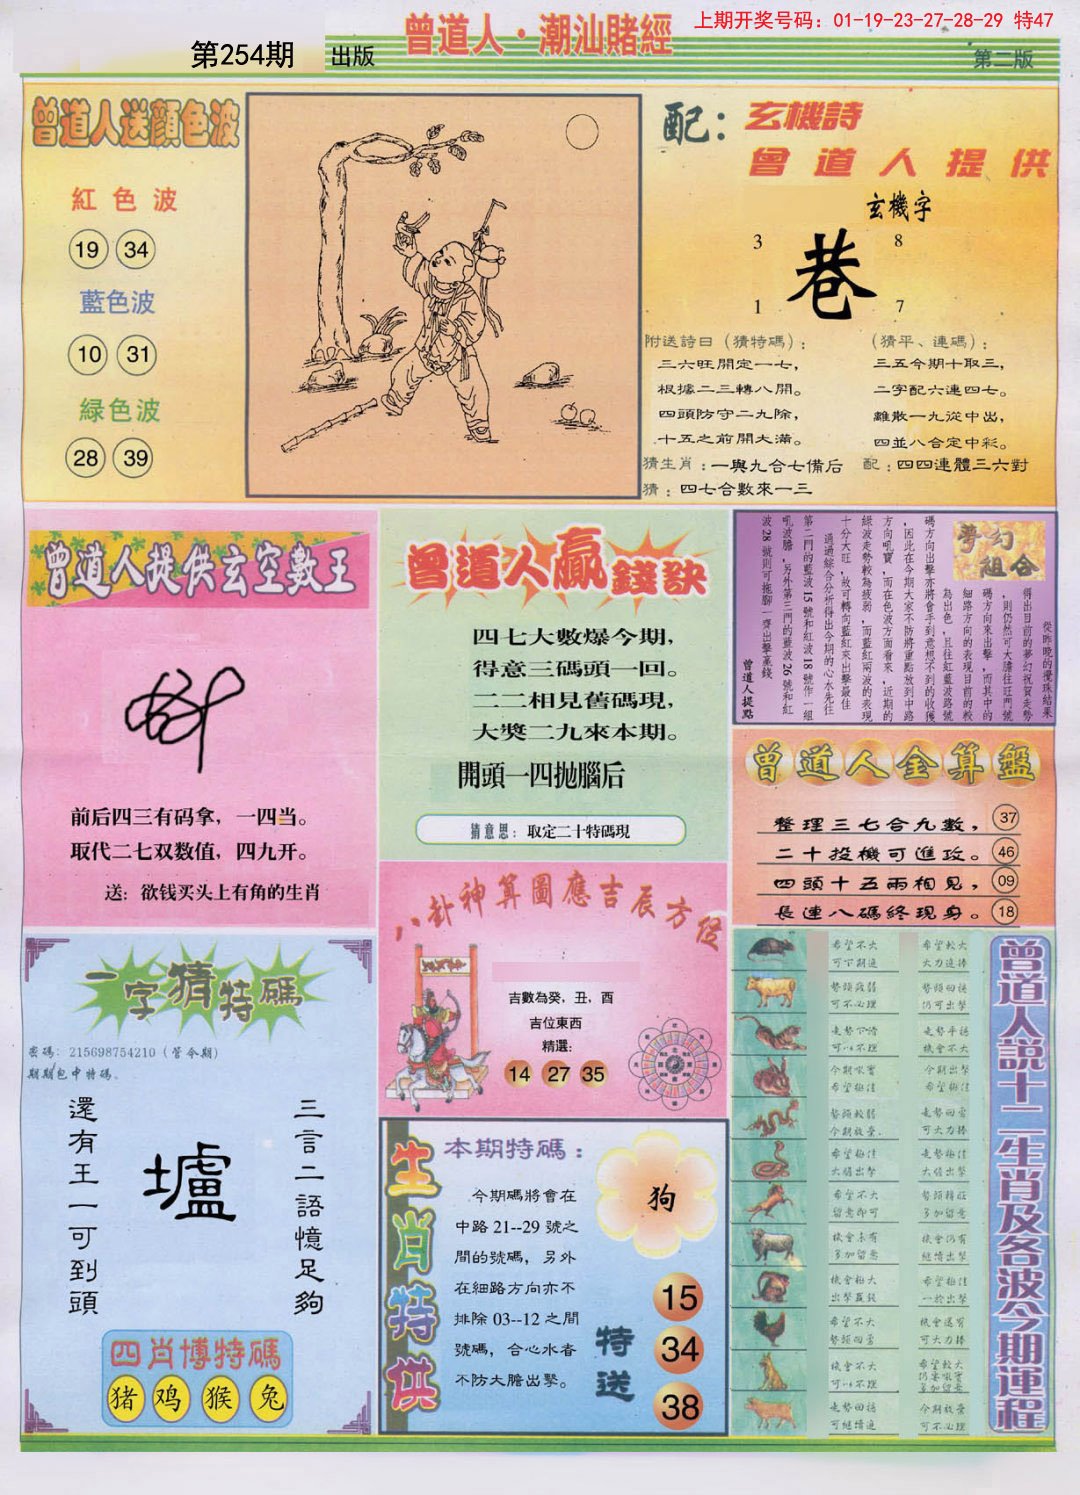 上期开奖号码：01-19-23-27-28-29 特47
曾道人·潮汕賭經
第254期 出版
第二版
曾道人送顔色波
紅色波
19 34
藍色波
10 31
緑色波
28 39
配：玄機詩
曾道人提供
玄機字
3 8
巷
1 7
附送詩曰（猜特碼）：
三六旺開定一七，
根據二三轉八開。
四頭防守二九除，
十五之前開大滿。
（猜平、連碼）：
三五今期十取三，
二字配六連四七。
離散一九從中出，
四並八合定中彩。
猜生肖：一與九合七備后
配：四四連體三六對
猜：四七合數來一三
曾道人提供玄空數王
前后四三有码拿，一四当。
取代二七双数值，四九开。
送：欲钱买头上有角的生肖
曾道人贏錢訣
四七大數爆今期，
得意三碼頭一回。
二二相見舊碼現，
大獎二九來本期。
開頭一四拋腦后
猜意思：取定二十特碼現
夢幻組合
從昨晚的攪珠結果
得出目前的夢幻祝賀走勢
，則仍然可大膽往旺門號
碼方向來出擊，而其中的
細路方向的表現目前的較
為出色，且往紅藍波路號
碼方向出擊亦將會手到意想不到的收獲
，因此在今期大家不防將重點放到中路
方向吼寶，而在色波方面看來，近期的
綠波走勢較為疲弱，而藍紅兩波的表現
十分大旺，故可轉向藍紅來出擊最佳
通過綜合分析得出今期的心水先往
第二門的藍波15號和紅波18號作一組
吼波膽，另外第三門的藍波26號和紅
波28號則可拖腳一齊出擊贏錢
曾道人提點
曾道人金算盤
整理三七合九數， 37
二十投機可進攻。 46
四頭十五兩相見， 09
長連八碼終現身。 18
八卦神算圖應吉辰方位
吉數為癸，丑，酉
吉位東西
精選：
14 27 35
一字猜特碼
密碼：215698754210（管今期）
期期包中特碼。
三言二語憶足夠
壚
還有王一可到頭
四肖博特碼
猪 鸡 猴 兔
生肖特供
本期特碼：
今期碼將會在
中路21--29號之
間的號碼，另外
在細路方向亦不
排除03--12之間
號碼，合心水者
不防大膽出擊。
狗
特送
15
34
38
曾道人說十二生肖及各波今期運程
希望不大
可下期追
希望較大
大力追捧
勢頭疲弱
可不必理
勢頭回穩
仍可出擊
走勢下滑
可以不理
走勢平穩
機會不大
今期吼實
希望極佳
今期出擊
希望極佳
勢頭較弱
今期放棄.
走勢回雷
可大力捧
希望極佳
大膽出擊
走勢極佳
大膽出擊
希望不大
留意即可
勢頭轉旺
多加留意
機會未有
多加留意
機會仍有
繼續出擊
機會極大
出擊贏錢
希望極佳
一於出擊
希望不大
機會還有
可大力捧
機會不大
可以不理
希望較大
仍要吼實
多加留意
走勢回穩
可繼續追
今期放棄
可不必理